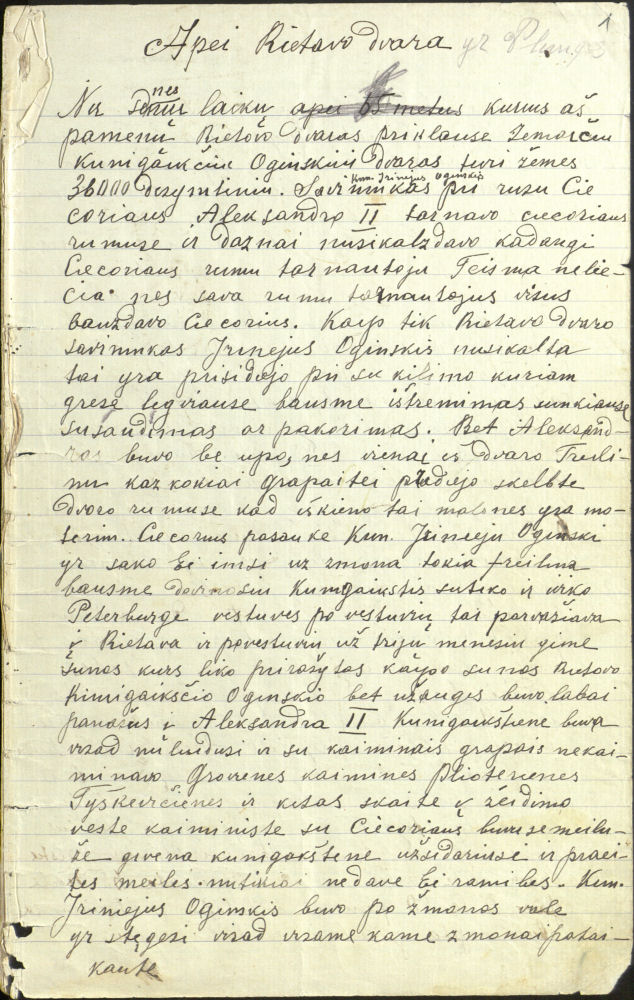 1
Apei Rietavo dvara yr Plunges
Nu senu nes laiku apei 65 metus kurius aš
pamenu Rietovo dvaras priklause Žemaičiu
kunigaikčiu Oginskiu dvaras turi žemes
36000 desymtiniu. Savininkas Kun. Irinejus Oginskis pri rusu Cie
coriaus Aleksandro II tarnavo ciecoriaus
rumuse ir daznai nusikalzdavo kadangi
Ciecoriaus rumu tarnautoju Teisma nelie-
cia nes sava rumu tarnautojus visus
bauzdavo Ciecorius. Kaip tik Rietavo dvaro
savininkas Irinejus Oginskis nusikalta
tai yra prisidiejo pri sukilimo kuriam
grese legviause bausme ištremimas sunkiause
susaudimas ar pakorimas. Bet Aleksand-
ras buvo be upo, nes vienai is dvaro Freili-
nu kaz kokiai grapaitei pradiejo skelbte
dvaro rumuse kad iškieno tai malones yra mo-
terim. Ciecorius pasauke Kun. Irinieju Oginski
yr sako bi imsi uz zmona tokia freilina
bausme dovinosiu Kunigaikstis sutiko ir iviko
Peterburge vestuves po vestuviu tai parvažiava
į Rietava ir povestuviu už triju menesiu gime
sunos kurs liko prirašytas kaipo sunos Rietovo
Kunigaikščio Oginskio bet užauges buvo labai
panašus į Aleksandra II Kunigaikštiene buva
visad nuliudusi ir su kaiminais grapais nekai-
minavo Grovienes kaimines Plioterienes
Tyškevičienes ir kitas skaite į žeidimo
veste kaiministe su Ciecoriaus buvuse meilu-
že givena kunigakštene užsidariusi ir praei-
tes meiles nutikiai nedave bi ramibes. Kun.
Iriniejus Oginskis buvo po žmonos vale
yr stęgesi visad visame kame zmonai patai-
kaute